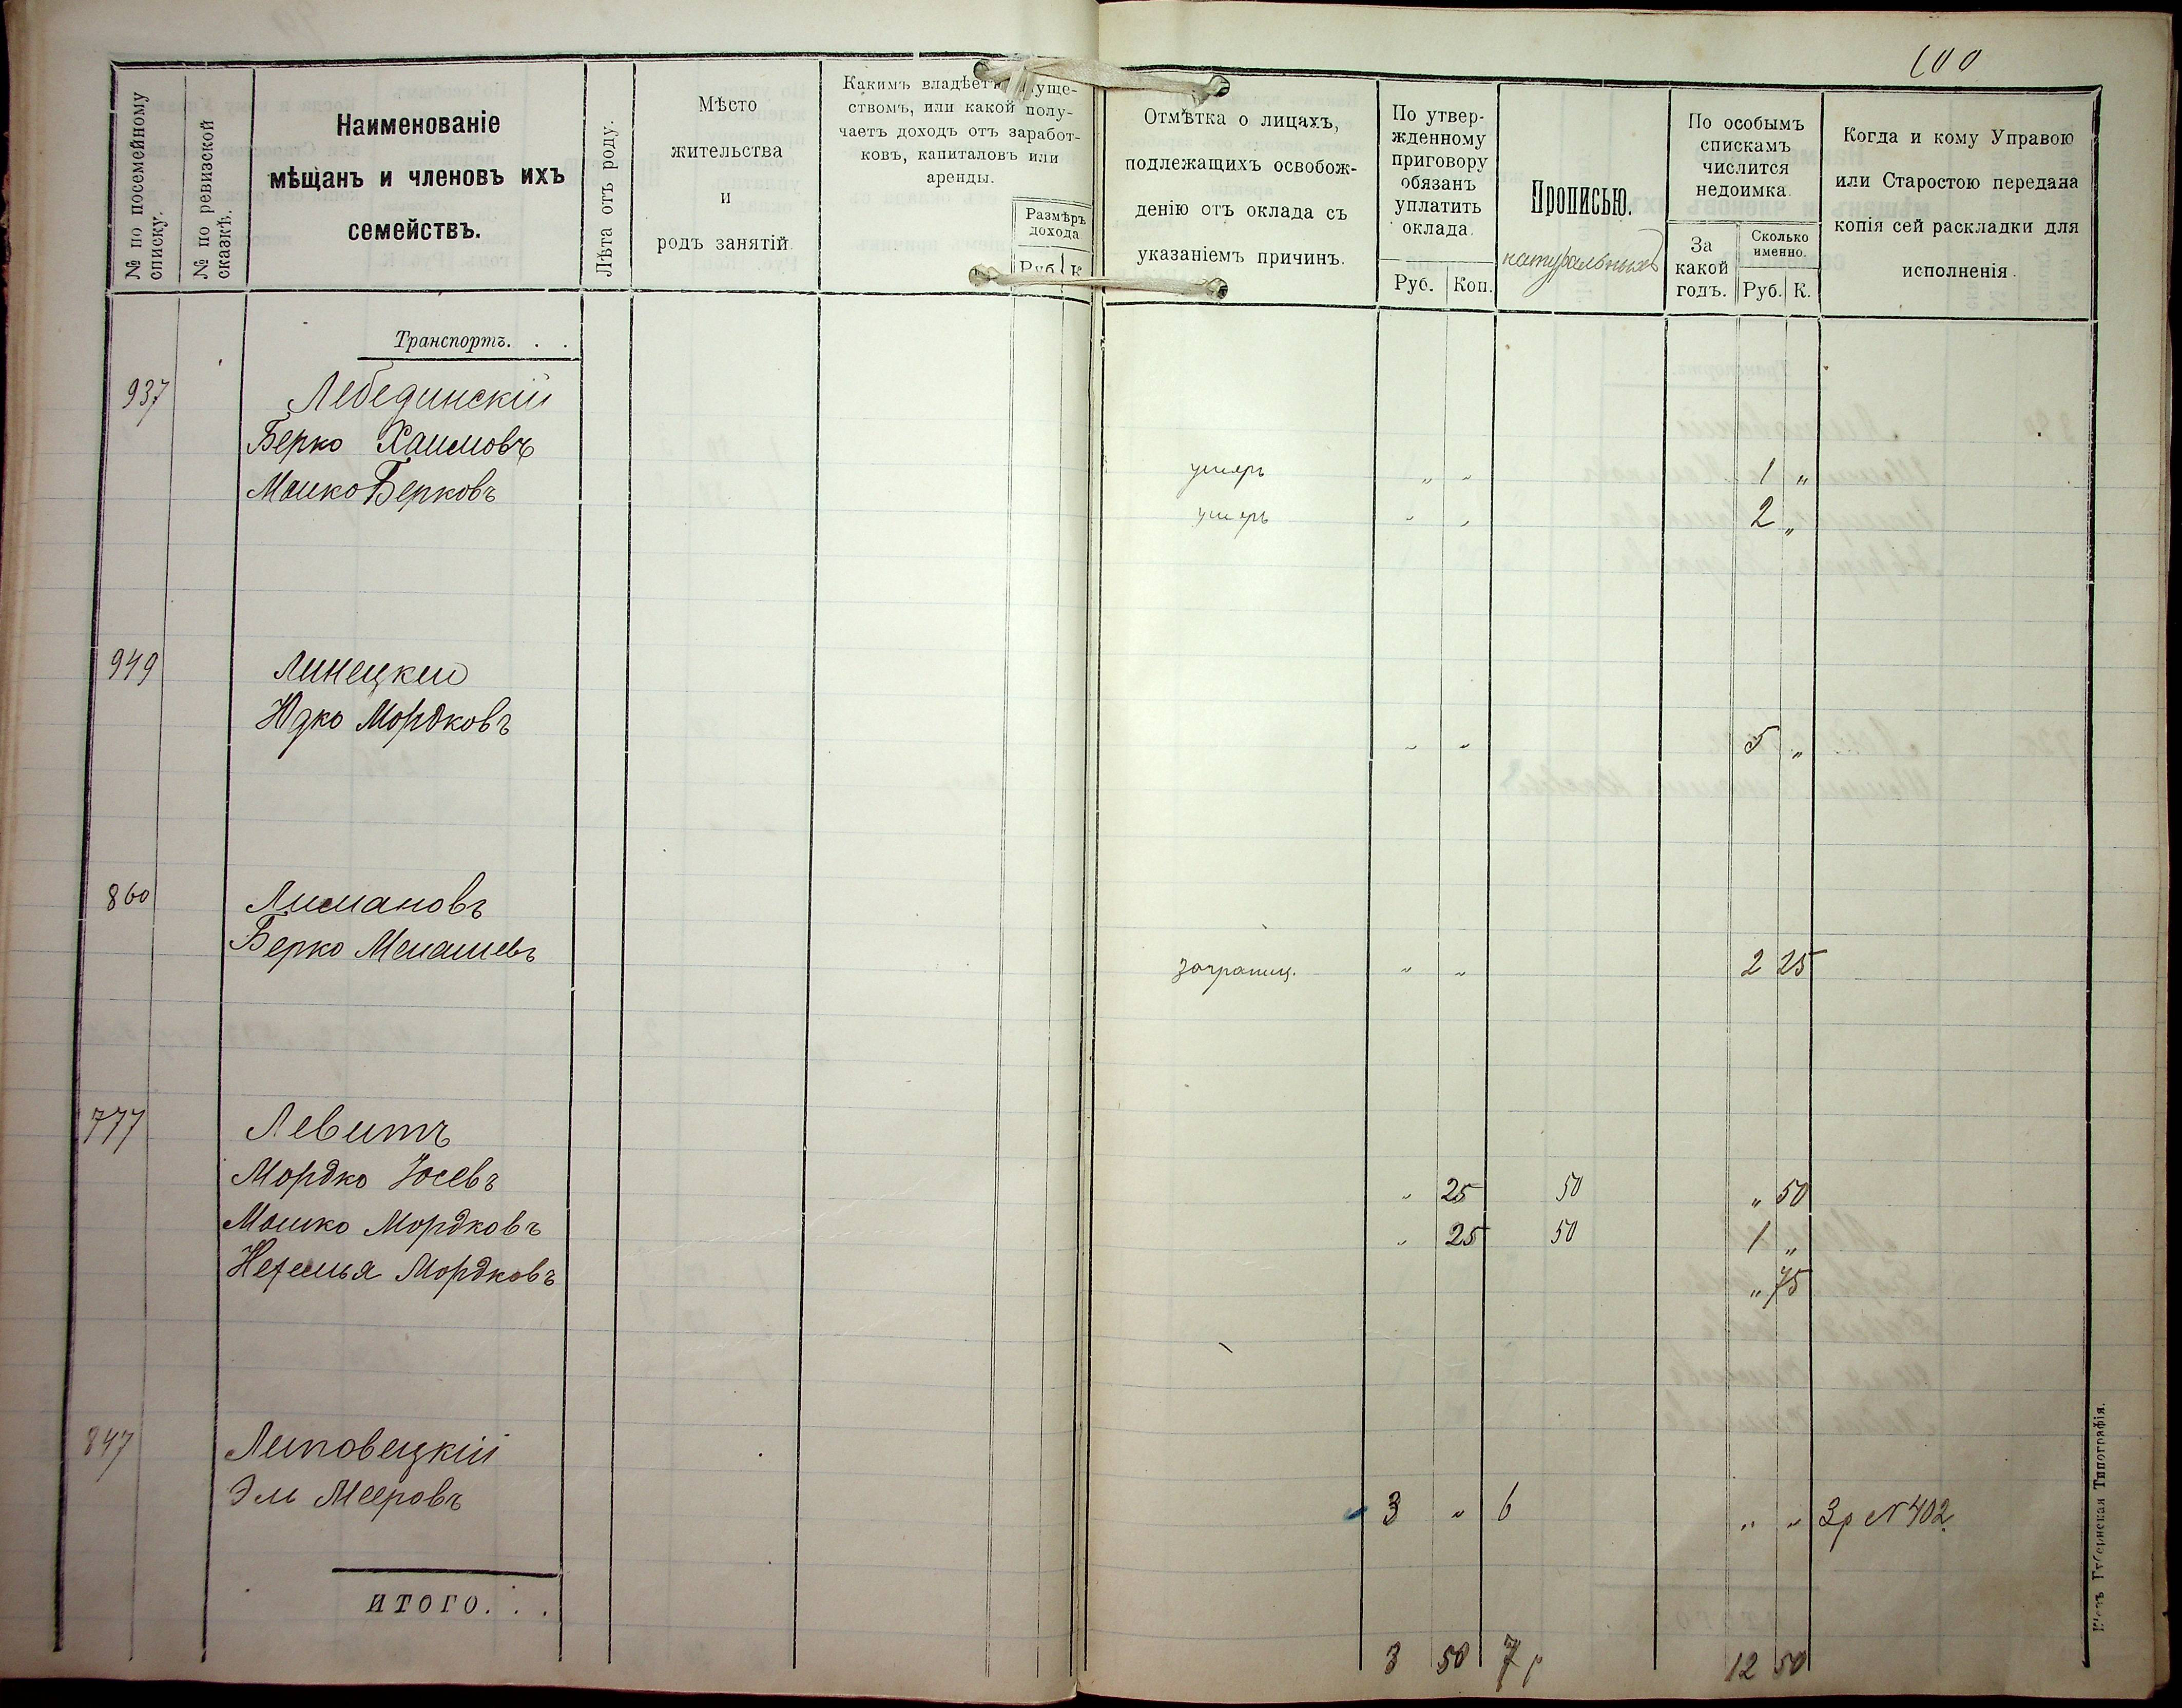 100
№ по посемейному списку.
№ по ревизской сказкѣ.
Наименованіе
мѣщанъ и членовъ ихъ
семействъ.
Лѣта отъ роду.
Мѣсто
жительства
и
родъ занятій.
Какимъ владѣетъ
ствомъ, или какой полу-
чаетъ доходъ отъ заработ-
ковъ, капиталовъ или
аренды.
Размѣръ
дохода
Руб. К
Отмѣтка о лицахъ,
подлежащихъ освобож-
денію отъ оклада съ
указаніемъ причинъ.
По утвер-
жденному
приговору
обязанъ
уплатить
оклада.
Руб. Коп.
Прописью.
натуральныхъ
По особымъ
спискамъ
числится
недоимка.
За
какой
годъ.
Сколько
именно.
Руб. К.
Когда и кому Управою
или Старостою передана
копія сей раскладки для
исполненія.
Транспортъ. . .
937 Лебединскій
Берко Хаимовъ умеръ „ „ 1 „
Мошко Берковъ умеръ „ „ 2 „
949 Линецкій
Юдко Мордковъ „ „ 5 „
860 Лимановъ
Берко Менашевъ заграниц. „ „ 2 25
777 Левитъ
Мордко Іосевъ „ 25 50 „ 50
Мошко Мордковъ „ 25 50 1 „
Нехемья Мордковъ „ 75
847 Липовецкій
Эль Мееровъ 3 „ 6 „ „ 3р №402
ИТОГО. . .
3 50 7р 12 50
Кіевъ Губернская Типографія.